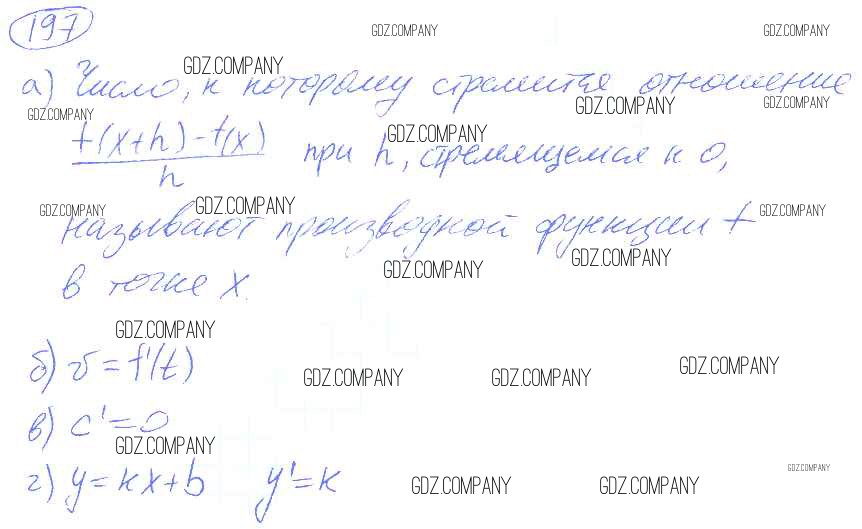 197
GDZ.COMPANY GDZ.COMPANY
GDZ.COMPANY
а) Число, к которому стремится отношение
GDZ.COMPANY GDZ.COMPANY GDZ.COMPANY
f(x+h)-f(x)
h
при h, стремящемся к 0,
GDZ.COMPANY
GDZ.COMPANY GDZ.COMPANY GDZ.COMPANY
называют производной функции f
GDZ.COMPANY GDZ.COMPANY
в точке x.
GDZ.COMPANY
б) v = f'(t)
GDZ.COMPANY GDZ.COMPANY GDZ.COMPANY
в) c' = 0
GDZ.COMPANY
г) y = kx+b y' = k
GDZ.COMPANY GDZ.COMPANY GDZ.COMPANY